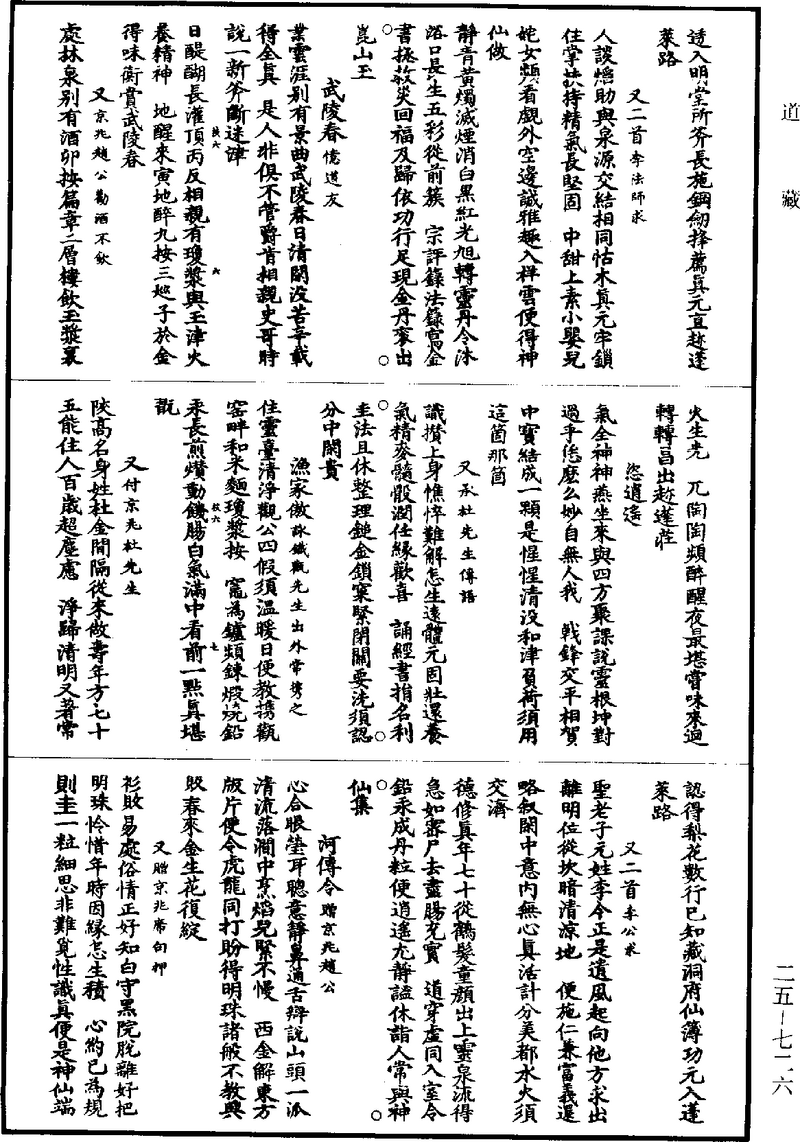 道藏
透入明堂所斧長施鋼劒擇薦眞元直趂蓬
萊路
又二首 李法師求
人談熖助與泉源交結相同怙木眞元牢鎖
住掌扶持精氣長堅固 中甜上素小嬰兒
姹女頻看覷外空邊誠雅趣入祥雲便得神
仙做
靜青黃燭滅煙消白黑紅光旭轉靈丹令沐
浴口長生五彩從前簇 宗評籙法籙寫金
書拯救災回福及歸依功行足現金丹衮出
崑山玉
武陵春 憶道友
業雲涯別有景曲武陵春日清閑没苦辛載
得全眞 是人非俱不管爵肯相親史哥時
說一新斧斷迷津
日醍醐長灌頂丙反相親有瓊漿與玉津火
養精神 地醒來寅地醉九按三廵子於金
得味衡賞武陵春
又 京兆趙公勸酒不飲
處林泉別有酒卯按篇章二層樓飲玉漿裏
火生光 兀陶陶頻醉醒夜最堪嘗味來迴
轉轉昌出趂蓬莊
恣逍遙
氣全神神燕坐來與四方聚課說靈根坤對
過乎恁麼么妙自無人我 戰鋒交平相賀
中寶結成一顆是惺惺清没和津負荷須用
這箇那箇
又 承杜先生傳語
識攢上身憔悴難解怎生遠體元固壯還養
氣精麥髓骰潤任緣歡喜 誦經書揹名利
圭法且休整理鎚金鎖窠緊閉關要洗須認
分中閑貴
漁家傲 詠鐵觀先生出外常携之
住靈臺清淨觀公四假須溫暖日便教携觀
窑畔和米麵瓊漿按 竈為鑪頻鍊煅燒鉛
汞長煎爨動饑腸白氣滿中看前一點眞堪
翫
又 付京兆杜先生
陜高名身姓杜金間隔從來做壽年方七十
五能住人百歳超塵慮 淨歸清明又著常
認得梨花數行巳知藏洞府仙簿功元入蓬
萊路
又二首 李公求
聖老子元姓李今正是道風起向他方求出
離明位從坎暗清涼地 便施仁兼富義還
略叙閑中意内無心眞活計分美都水火須
交濟
德修眞年七十從鶴髮童顔出上靈泉流得
急如審尸去盡腸充實 道穿虛同入室令
鉛汞成丹粒便逍遙尢靜謐休詣人常與神
仙集
河傳令 贈京兆趙公
心合眼瑩耳聰意靜鼻通舌辯說山頭一派
清流落澗中烹熖兒緊不慢 西金解東方
版片便令虎龍同打盼得明珠諸般不教與
股春來金生花復綻
又 贈京兆席向押
衫敗易處俗情正好知白守黑院脫離好把
明珠怜惜年時因緣怎生積 心約已為規
則圭一粒細思非難覓性識眞便是神仙端
二五—七二六